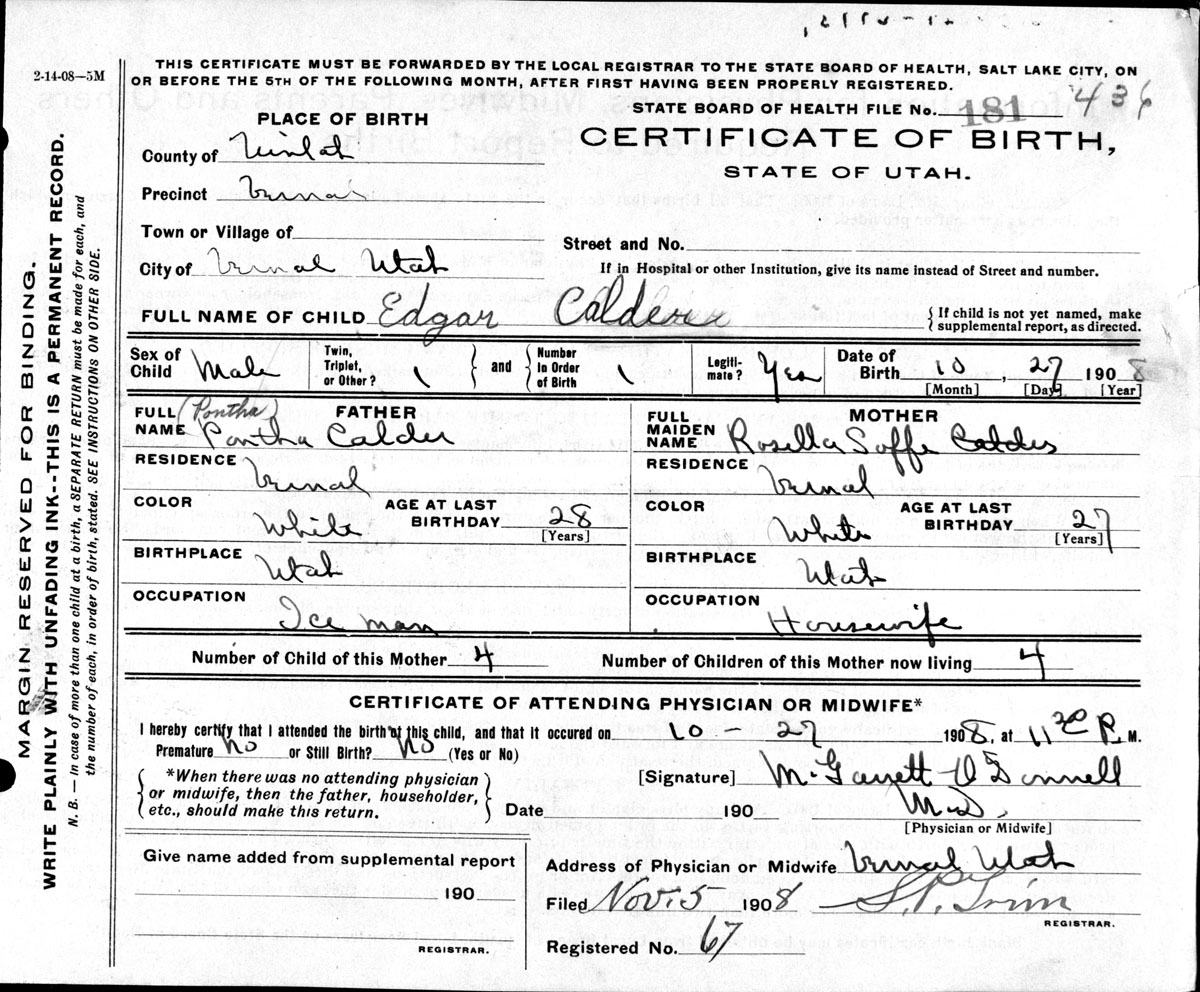 2-14-08—5M
THIS CERTIFICATE MUST BE FORWARDED BY THE LOCAL REGISTRAR TO THE STATE BOARD OF HEALTH, SALT LAKE CITY, ON
OR BEFORE THE 5TH OF THE FOLLOWING MONTH, AFTER FIRST HAVING BEEN PROPERLY REGISTERED.
436
STATE BOARD OF HEALTH FILE No. 181
PLACE OF BIRTH
CERTIFICATE OF BIRTH,
STATE OF UTAH.
County of
Precinct Vernal
Town or Village of
Street and No.
City of Vernal Utah
If in Hospital or other Institution, give its name instead of Street and number.
FULL NAME OF CHILD Edgar Calder
{ If child is not yet named, make
supplemental report, as directed.
Sex of Child Male
Twin, Triplet, or Other? 1
and
Number In Order of Birth 1
Legiti-mate? Yes
Date of Birth 10, 27 1908
[Month] [Day] [Year]
FULL NAME (Pontha) FATHER
Pontha Calder
FULL MAIDEN NAME MOTHER
Rosella Soffe Calder
RESIDENCE Vernal
RESIDENCE Vernal
COLOR White
AGE AT LAST BIRTHDAY 28
[Years]
COLOR White
AGE AT LAST BIRTHDAY 27
[Years]
BIRTHPLACE Utah
BIRTHPLACE Utah
OCCUPATION Ice man
OCCUPATION Housewife
Number of Child of this Mother 4
Number of Children of this Mother now living 4
CERTIFICATE OF ATTENDING PHYSICIAN OR MIDWIFE*
I hereby certify that I attended the birth of this child, and that it occured on 10 - 27 1908, at 11 30 P. M.
Premature No or Still Birth? No (Yes or No)
*When there was no attending physician
or midwife, then the father, householder,
etc., should make this return.
[Signature] M. Garrett O'Donnell
M.D.
Date 190
[Physician or Midwife]
Give name added from supplemental report
190
REGISTRAR.
Address of Physician or Midwife Vernal Utah
Filed Nov. 5 1908
REGISTRAR.
Registered No. 67
MARGIN RESERVED FOR BINDING.
WRITE PLAINLY WITH UNFADING INK--THIS IS A PERMANENT RECORD.
N. B. — In case of more than one child at a birth, a SEPARATE RETURN must be made for each, and
the number of each, in order of birth, stated. SEE INSTRUCTIONS ON OTHER SIDE.